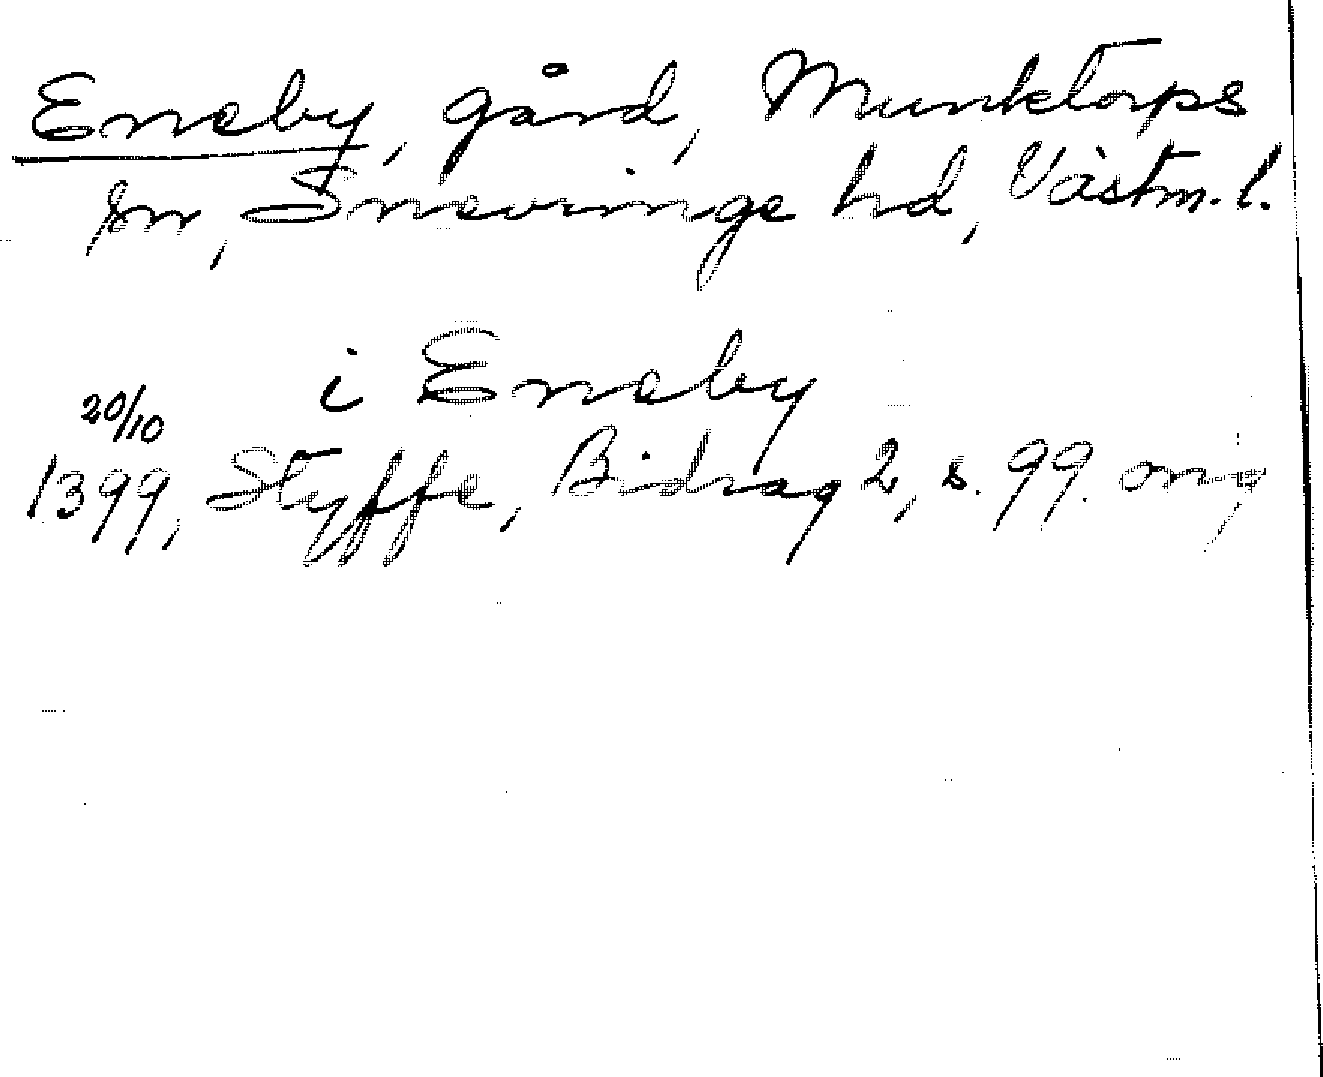 Eneby, gård, Munktorps
sn, Snevringe hd, Västm. l.
i Eneby
20/10
1399, Styffe, Bidrag 2, s. 99. orig